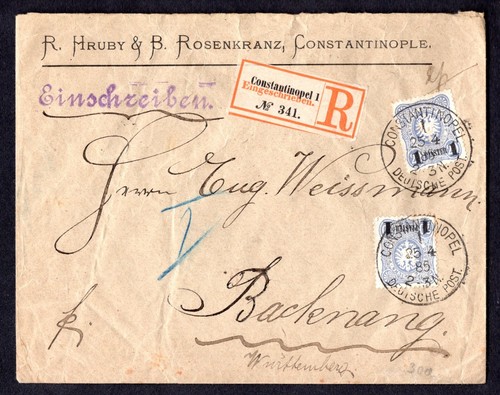 R. HRUBY & B. ROSENKRANZ, CONSTANTINOPLE.
Einschreiben.
Constantinopel 1
Eingeschrieben.
№ 341.
R
CONSTANTINOPEL
25 4
2-3N.
DEUTSCHE POST.
1 PIASTER 1
Herrn Eug. Weissmann.
CONSTANTINOPEL
25 4
85
2-3N.
DEUTSCHE POST.
1 PIASTER 1
Backnang.
Württemberg
300